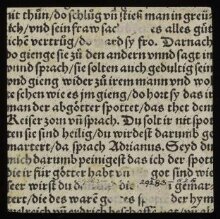 nit thůn/ do schlůg vñ stieß man in greu
tch/ vnd sein fraw sac es alles güt
iche vertrüg/ do ard sy fro. Darnach
do gienge sie zů den andern vnnd sagt in
vnd sprach/ sie solten auch geduldig sein
vnd gieng wider zů irem mann vnd wo
schen wie es jm gieng/ do hort sy das in
man der abgötter spottet/ das thet de
Keiser zorn vñ sprach. Du solt ir nit spot
sie sind heilig/ du wirdest darumb ge
martert/ da sprach Adrianus. Seyd du
mich darumb peinigest das ich der spott
für götter habt
wer wirst du die i gemar
tert/ die des ware